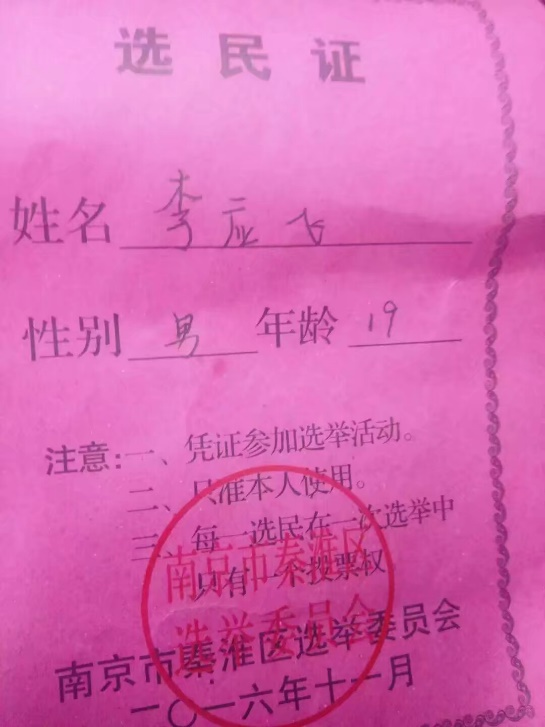 选民证
姓名 李应飞
性别 男 年龄 19
注意：一、凭证参加选举活动。
二、只准本人使用。
三、每一选民在一次选举中
只有一个投票权
南京市秦淮区
选举委员会
南京市秦淮区选举委员会
二〇一六年十一月